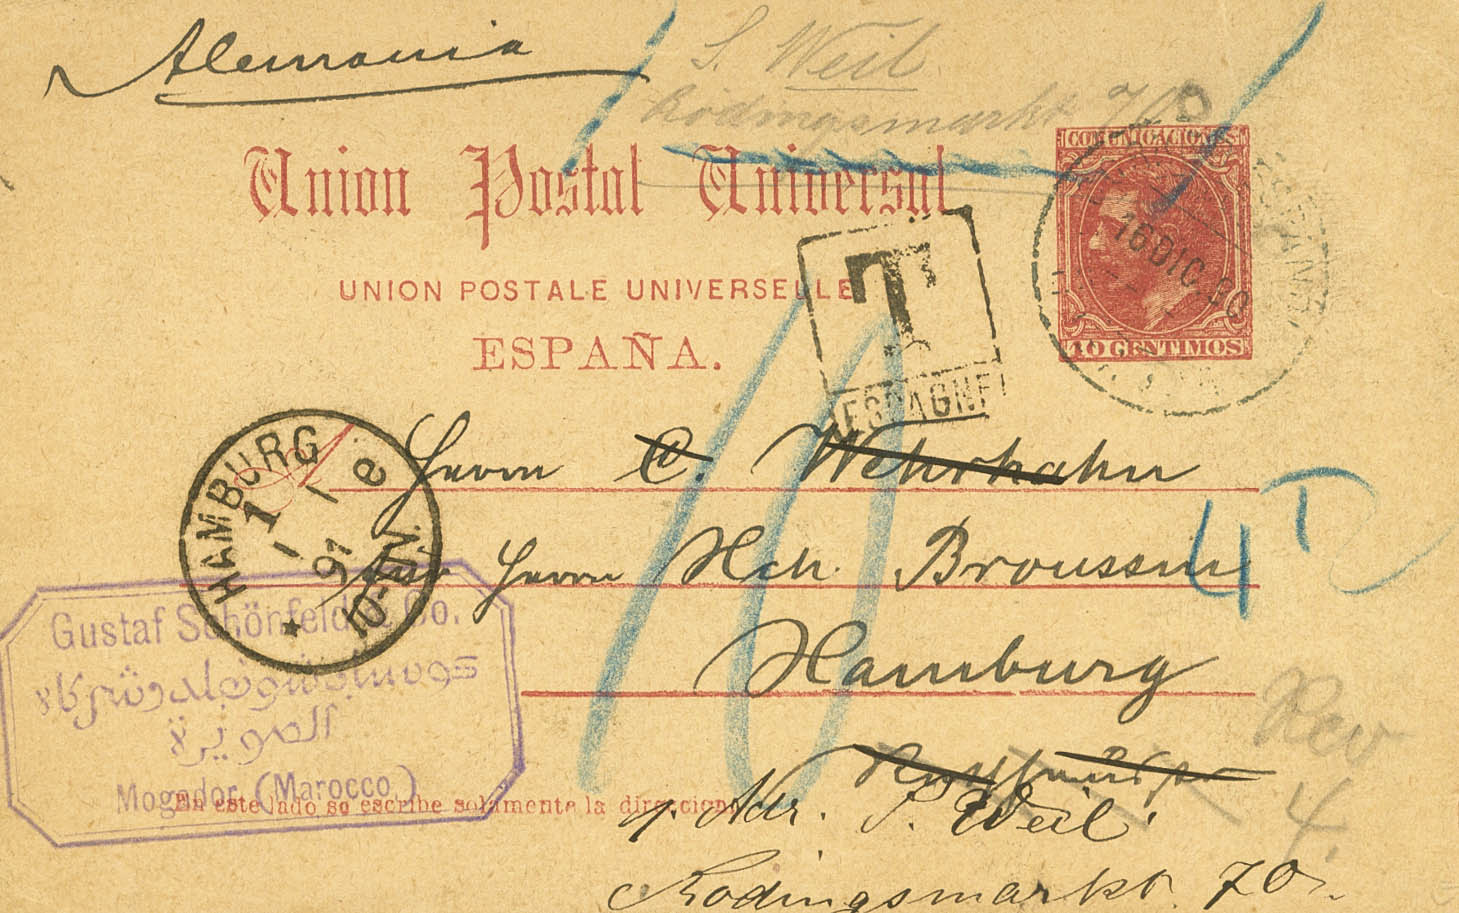 Alemania
S. Weil
Rödingsmarkt 70
Union Postal Universal
UNION POSTALE UNIVERSELLE
ESPAÑA.
COMUNICACIONES
10 CENTIMOS
16 DIC. 90
T
ESPAGNE
HAMBURG
1
e
1
91
10-11 V.
10
Herrn C. Wehrhahn
Herrn Hch. Broussin
4
Hamburg
Gustaf Schönfeld & Co.
كوستاف شونفلد وشركاه
الصويرة
Mogador (Marocco.)
En este lado se escribe solamente la direccion.
Adr. S. Weil
Rödingsmarkt 70
4.